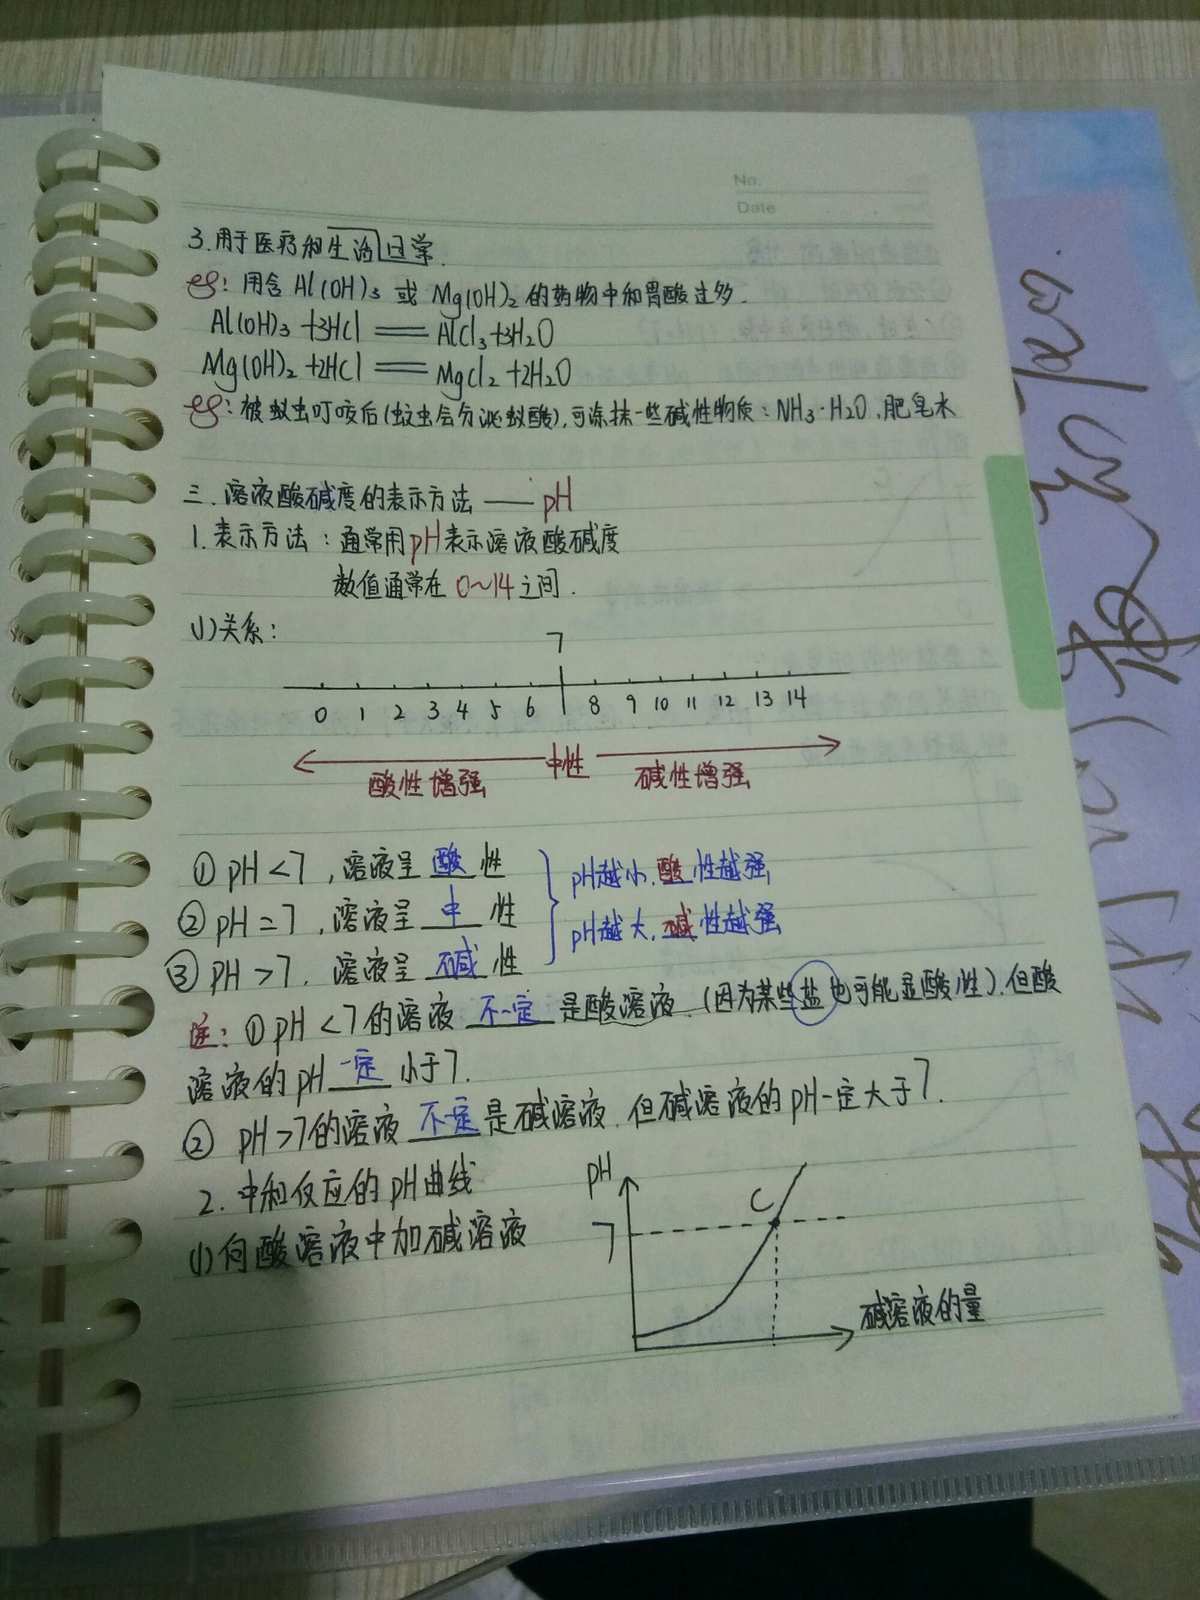 No.
Date
3.用于医疗和生活日常.
eg: 用含 Al(OH)3 或 Mg(OH)2 的药物中和胃酸过多.
Al(OH)3 +3HCl == AlCl3 +3H2O
Mg(OH)2 +2HCl == MgCl2 +2H2O
eg: 被蚊虫叮咬后(蚊虫会分泌蚁酸),可涂抹一些碱性物质: NH3·H2O,肥皂水
三.溶液酸碱度的表示方法 —— pH
1.表示方法: 通常用pH表示溶液酸碱度
数值通常在 0~14之间.
(1)关系:
7
0 1 2 3 4 5 6 8 9 10 11 12 13 14
酸性增强 中性 碱性增强
① pH<7 ,溶液呈 酸 性
pH越小,酸性越强
② pH=7 ,溶液呈 中 性
pH越大,碱性越强
③ pH>7, 溶液呈 碱 性
注: ① pH <7的溶液 不一定 是酸溶液.(因为某些盐也可能显酸性).但酸
溶液的pH 一定 小于7.
② pH>7的溶液 不一定 是碱溶液.但碱溶液的pH一定大于7.
2. 中和反应的pH曲线
(1)向酸溶液中加碱溶液
pH
C
7
碱溶液的量